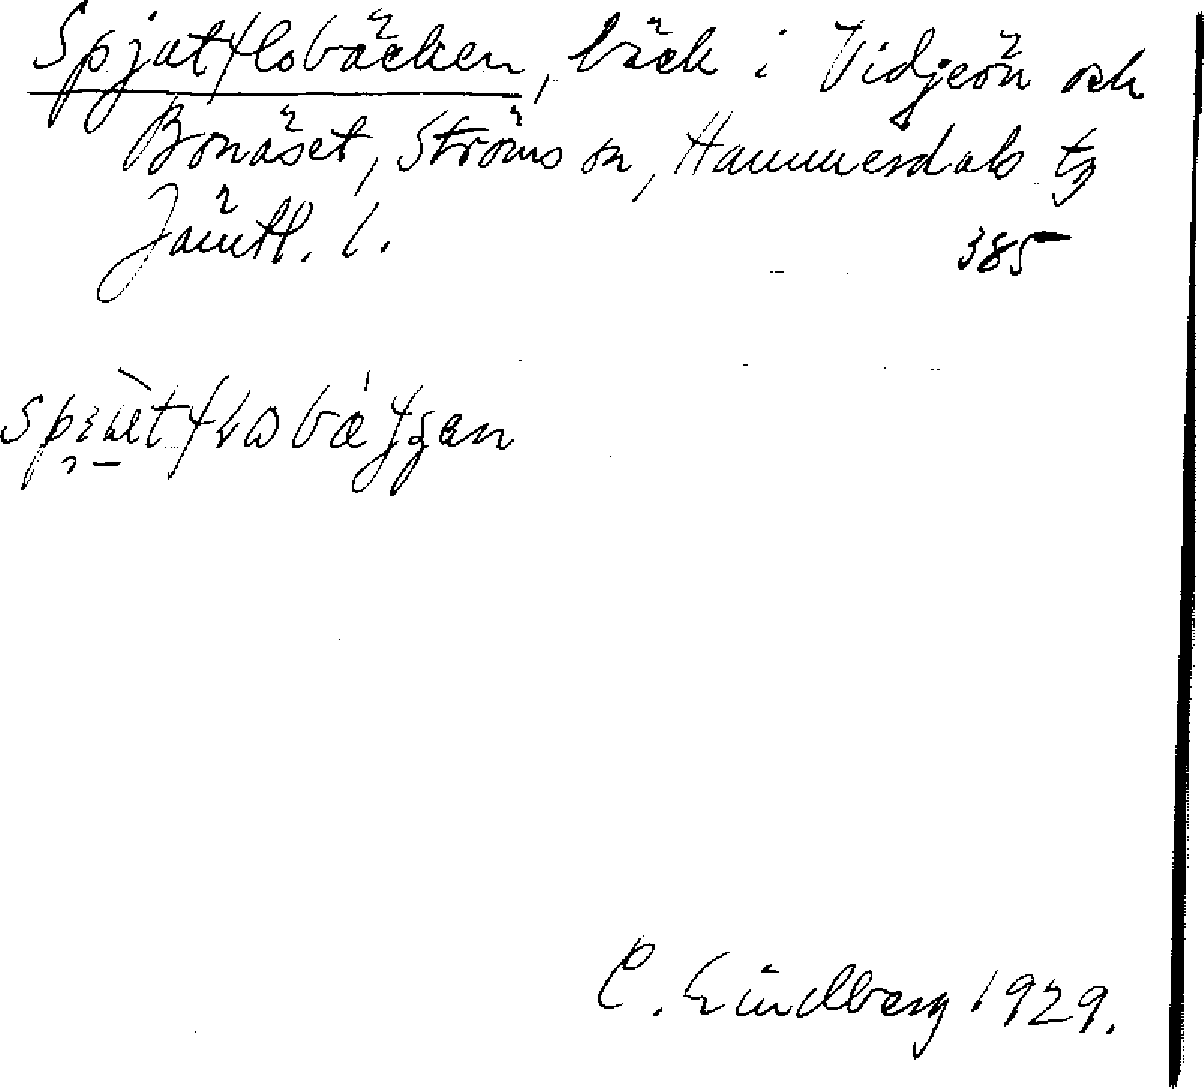 Spjutflobäcken, bäck i Vidjeön och
Bonäset, Ströms sn, Hammerdals tg
Jämtl. l.
385
C. Lindberg 1929.